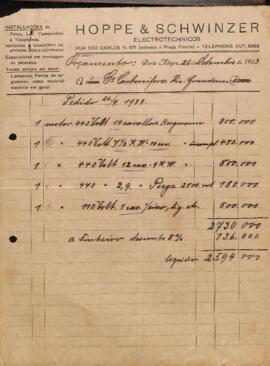 INSTALLAÇÕES de
Força, Luz, Campainhas
e Telephones.
REFORMA e CONCERTO DE
APPARELHOS ELECTRICOS
Especialistas em montagem
de elevadores.
Temos sempre em stock:
Lampadas, Ferros de en-
gommar, como material
electrico em geral.
HOPPE & SCHWINZER
ELECTROTECHNICOS
RUA SÃO CARLOS N. 671 (esheira à Praça Florida) - TELEPHONE AUT. 6666
Orçamento: Porto Alegre, 26 Setembro de 1933
Pedido 26/9. 1933.
1 motor 440 Volt 14 cavallos 800.000
1 " 440 Volt 7½ K.W. 10 cav. 450.000
1 " 440 Volt 12 cav. 9 K.W. 500.000
1 " 440 " 2,9 " 180.000
1 " 110 Volt 1 cav. 800.000
2730 000
a dinheiro desconto 5% 136.000
liquidos 2.594 000